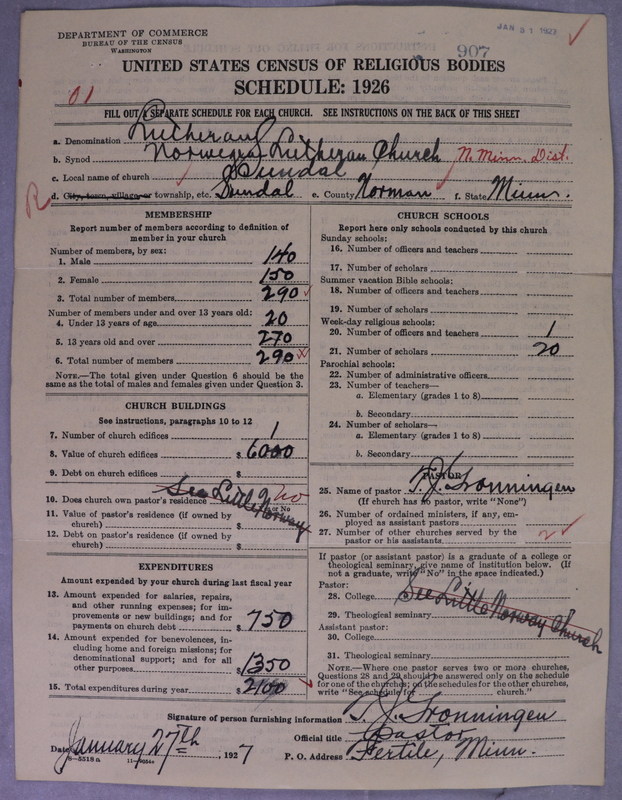 DEPARTMENT OF COMMERCE
BUREAU OF THE CENSUS
WASHINGTON
JAN 31 1927
907
UNITED STATES CENSUS OF RELIGIOUS BODIES
SCHEDULE: 1926
01
FILL OUT A SEPARATE SCHEDULE FOR EACH CHURCH. SEE INSTRUCTIONS ON THE BACK OF THIS SHEET
a. Denomination Lutheran
b. Synod Norwegian Lutheran Church N. Minn. Dist.
c. Local name of church Sundal
d. City, town, village, or township, etc. Sundal e. County Norman f. State Minn.
R
MEMBERSHIP
Report number of members according to definition of
member in your church
Number of members, by sex:
1. Male 140
2. Female 150
3. Total number of members 290
Number of members under and over 13 years old:
4. Under 13 years of age 20
5. 13 years old and over 270
6. Total number of members 290
NOTE.—The total given under Question 6 should be
same as the total of males and females given under Question 3.
CHURCH BUILDINGS
See instructions, paragraphs 10 to 12
7. Number of church edifices 1
8. Value of church edifices $ 6000
9. Debt on church edifices $
10. Does church own pastor's residence See Little Norway no
Yes or No
11. Value of pastor's residence (if owned by
church) $
12. Debt on pastor's residence (if owned by
church) $
EXPENDITURES
Amount expended by your church during last fiscal year
13. Amount expended for salaries, repairs,
and other running expenses; for im-
provements or new buildings; and for
payments on church debt $ 750
14. Amount expended for benevolences, in-
cluding home and foreign missions; for
denominational support; and for all
other purposes $ 1350
15. Total expenditures during year $ 2100
CHURCH SCHOOLS
Report here only schools conducted by this church
Sunday schools:
16. Number of officers and teachers
17. Number of scholars
Summer vacation Bible schools:
18. Number of officers and teachers
19. Number of scholars
Week-day religious schools:
20. Number of officers and teachers 1
21. Number of scholars 20
Parochial schools:
22. Number of administrative officers
23. Number of teachers—
a. Elementary (grades 1 to 8)
b. Secondary
24. Number of scholars—
a. Elementary (grades 1 to 8)
b. Secondary
PASTOR
25. Name of pastor T. J. Tronningen
(If church has no pastor, write "None")
26. Number of ordained ministers, if any, em-
ployed as assistant pastors
27. Number of other churches served by the
pastor or his assistants 2
If pastor (or assistant pastor) is a graduate of a college or
theological seminary, give name of institution below. (If
not a graduate, write "No" in the space indicated.)
Pastor:
28. College See Little Norway Church
29. Theological seminary
Assistant pastor:
30. College
31. Theological seminary
NOTE.—Where one pastor serves two or more churches,
Questions 28 and 29 should be answered only on the schedule
for one of the churches; on the schedules for the other churches,
write "See schedule for church."
Signature of person furnishing information T. J. Tronningen
Official title Pastor
Date January 27th, 1927
P. O. Address Fertile, Minn.
8—5518a 11—9054